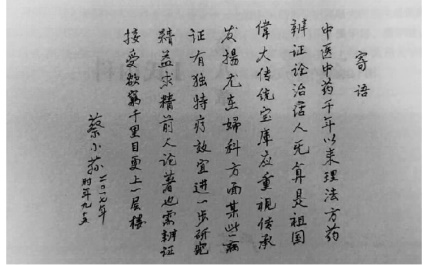 寄语
中医中药千年以来理法方药
辨证论治活人无算是祖国
偉大传统宝库应重视传承
发揚尤在婦科方面某些病
证有独特疗效宜进一步研究
精益求精前人论著也需辨证
接受欲窮千里目更上一层楼
蔡小荪
二〇一七年
时年九五